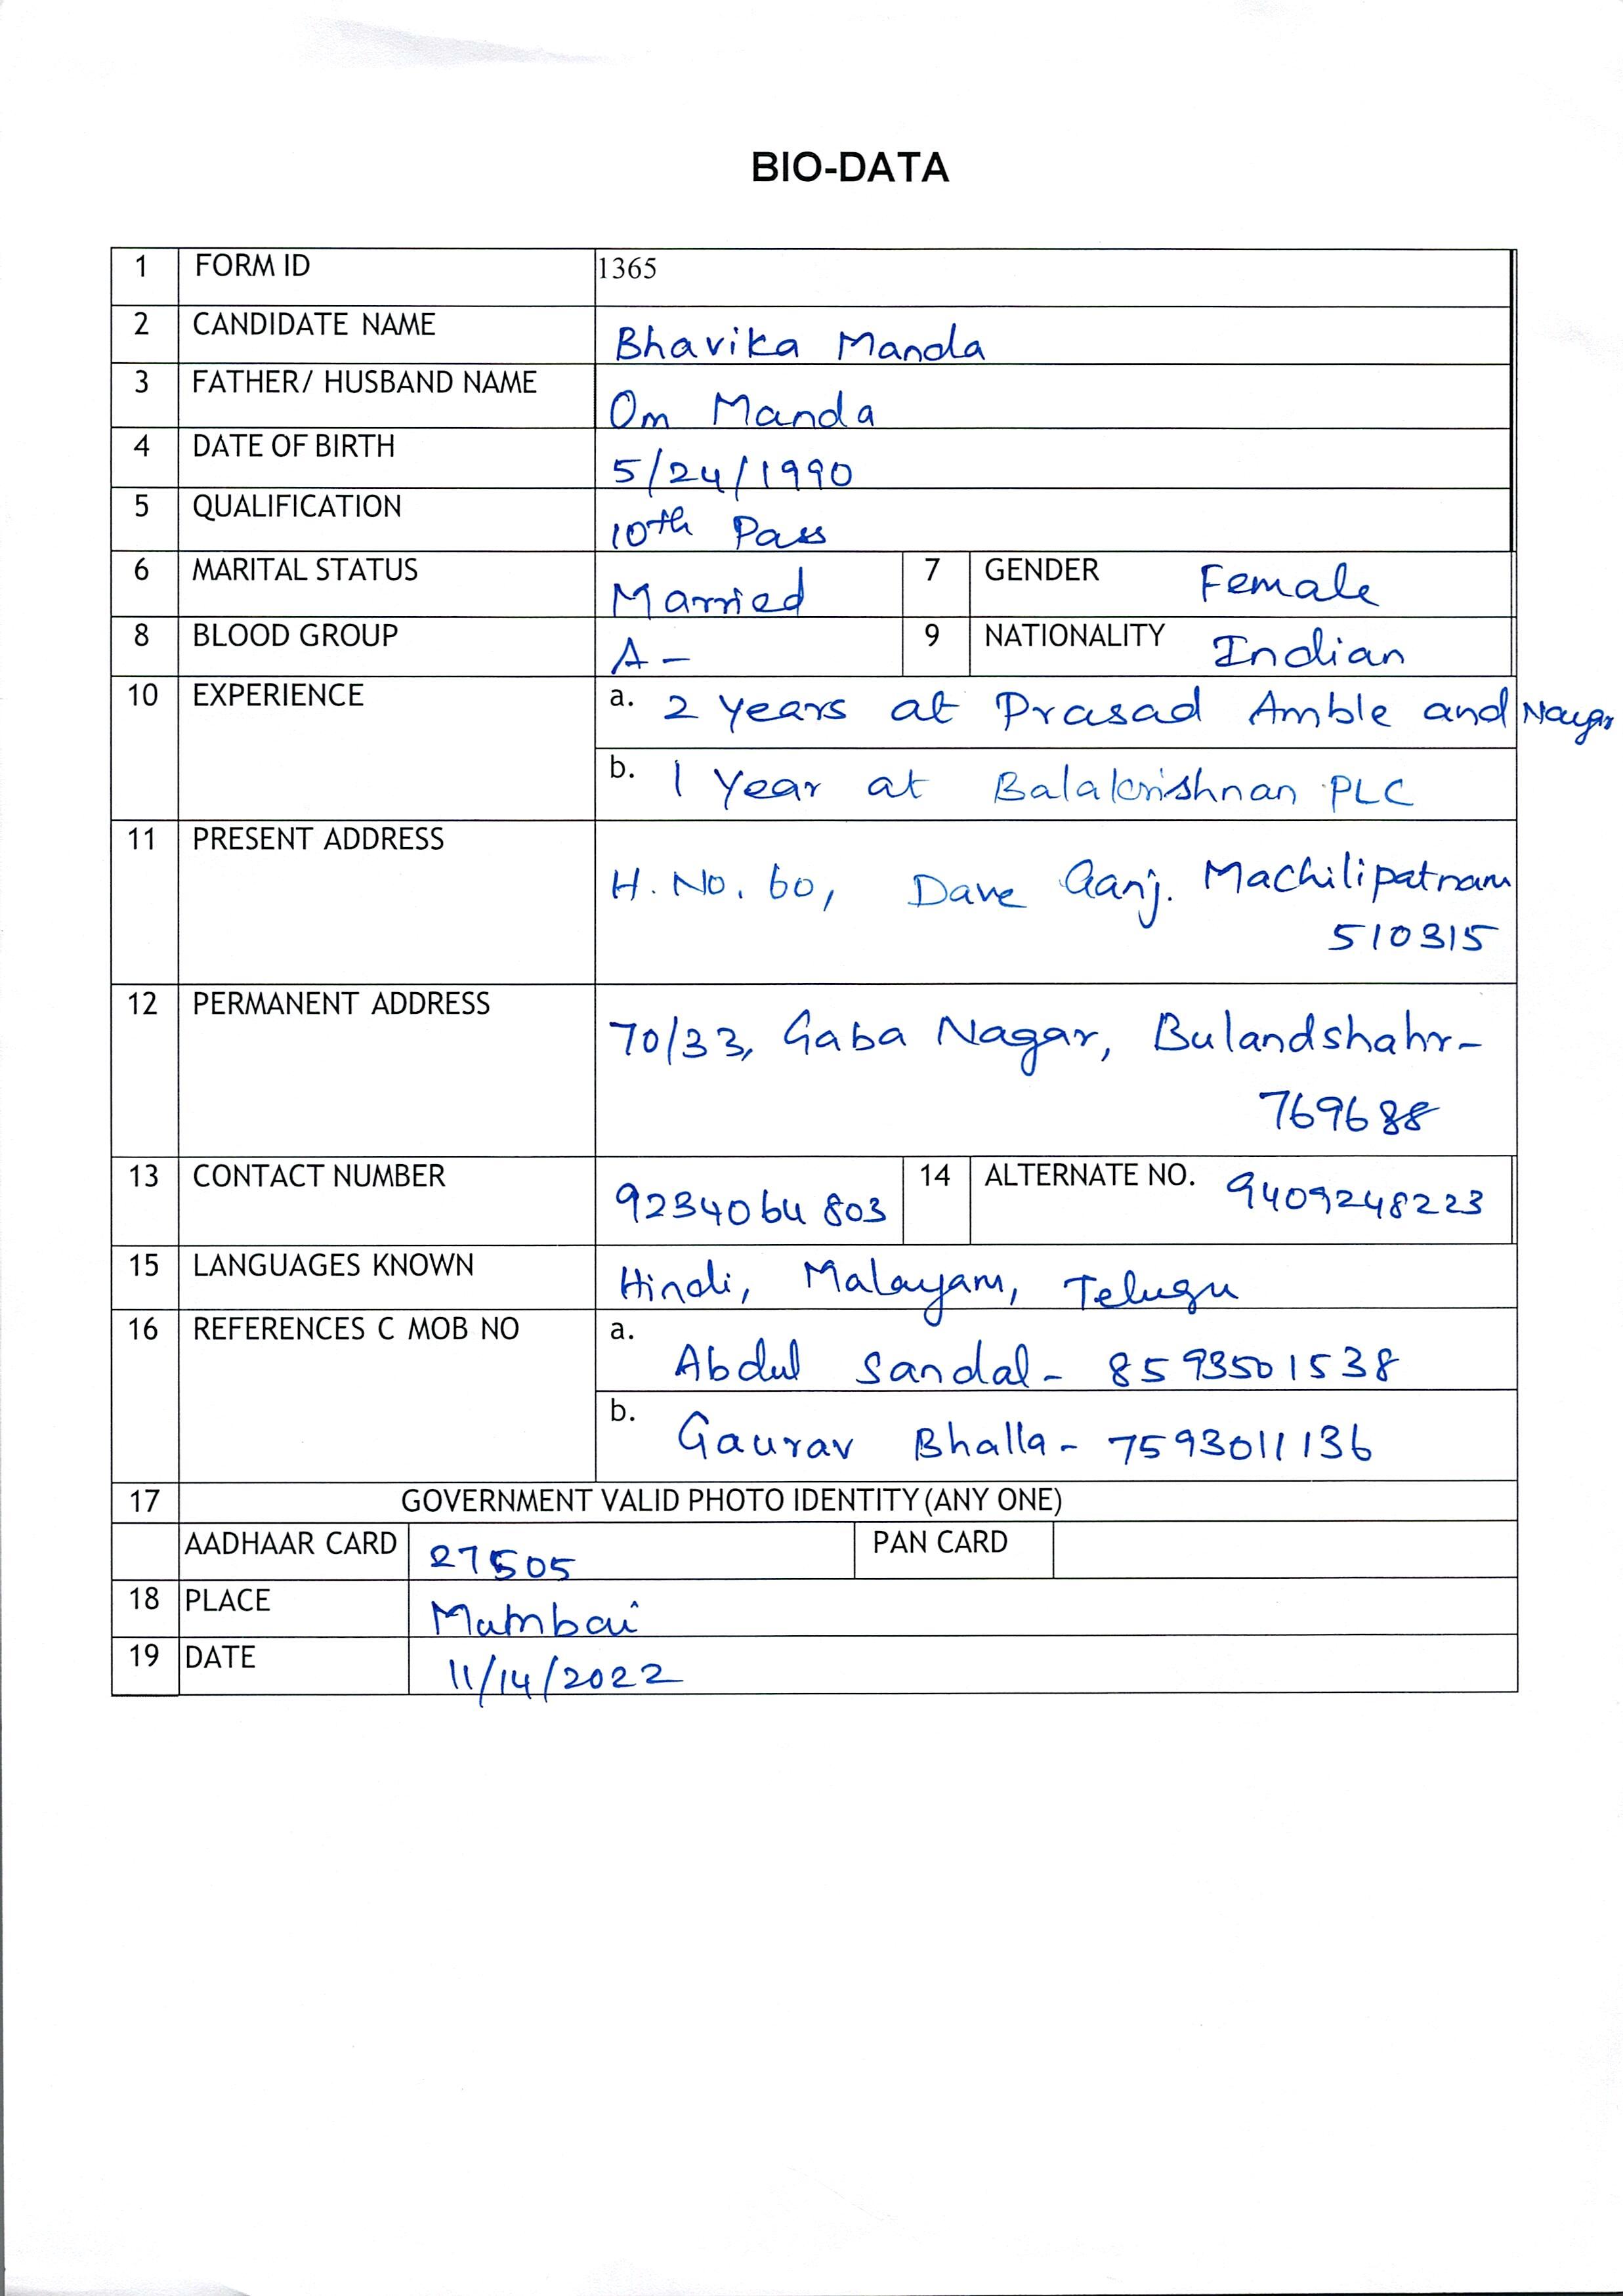 BIO-DATA
1 FORM ID 1365
2 CANDIDATE NAME Bhavika Manda
3 FATHER/ HUSBAND NAME Om Manda
4 DATE OF BIRTH 5/24/1990
5 QUALIFICATION 10th Pass
6 MARITAL STATUS Married 7 GENDER Female
8 BLOOD GROUP A- 9 NATIONALITY Indian
10 EXPERIENCE a. 2 years at Prasad Amble and Nagar
b. 1 Year at Balakrishnan PLC
11 PRESENT ADDRESS
H. No. 60, Dave Ganj. Machilipatnam
510315
12 PERMANENT ADDRESS
70/33, Gaba Nagar, Bulandshahr-
769688
13 CONTACT NUMBER 9234064803 14 ALTERNATE NO. 9409248223
15 LANGUAGES KNOWN Hindi, Malayam, Telugu
16 REFERENCES C MOB NO a. Abdul Sandal- 8593501538
b. Gaurav Bhalla- 7593011136
17 GOVERNMENT VALID PHOTO IDENTITY (ANY ONE)
AADHAAR CARD 27505 PAN CARD
18 PLACE Mumbai
19 DATE 11/14/2022